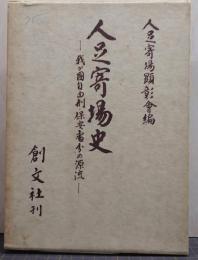 人足寄場顕彰會編
人足寄場史
―我が國自由刑・保安處分の源流―
創文社刊